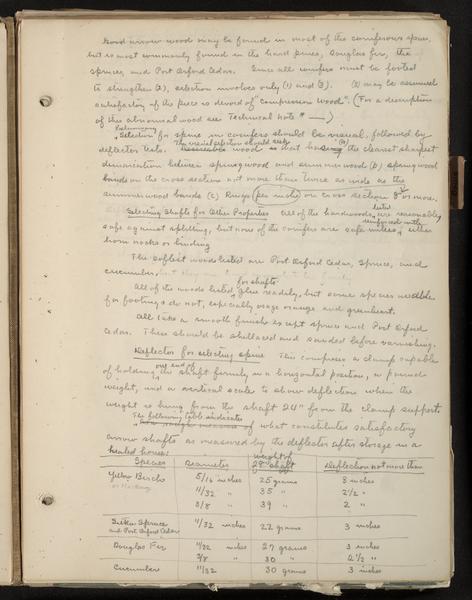 Good arrow wood may be found in most of the coniferous species
but is most commonly found in the hard pines, Douglas fir, the
spruces, and Port Orford Cedar. Since all conifers must be footed
to strengthen (2), selection involves only (1) and (3). (2) may be assumed
satisfactory if the piece is devoid of "Compression Wood". (For a description
of this abnormal wood see Technical note # —)
Preliminary
Selection for spine in conifers should be visual, followed by
deflector tests. The visual selection should seek wood that has (a) the clearest sharpest
demarcation between springwood and summerwood (b) springwood
bands on the cross section not more than twice as wide as the
summerwood bands (c) Rings (per inch) on cross section 8 or more.
Selecting Shafts for Other Properties All of the hardwoods listed are reasonably
safe against splitting, but none of the conifers are safe unless reinforced with either
horn nocks or binding
The softest woods listed are Port Orford Cedar, Spruce, and
cucumber,
All of the woods listed for shafts glue readily, but some species
for footings do not, especially osage orange and greenheart.
All take a smooth finish except spruce and Port Orford
Cedar. These should be shellaced and sanded before varnishing.
Deflector for selecting spine This comprises a clamp capable
of holding one end of the shaft firmly in a horizontal position, a pound
weight, and a vertical scale to show deflection when the
weight is hung from the shaft 24" from the clamp support.
The following table indicates
of what constitutes satisfactory
arrow shafts as measured by the deflector after storage in a
heated house:
Species Diameter weight of 28" shaft Deflection not more than
Yellow Birch 5/16 inches 25 grams 3 inches
11/32 " 35 " 2 1/2 "
3/8 " 39 " 2 "
Sitka Spruce and Port Orford Cedar 11/32 inches 22 grams 3 inches
Douglas Fir 11/32 inches 27 grams 3 inches
3/8 " 30 " 2 1/2 "
Cucumber 11/32 30 grams 3 inches